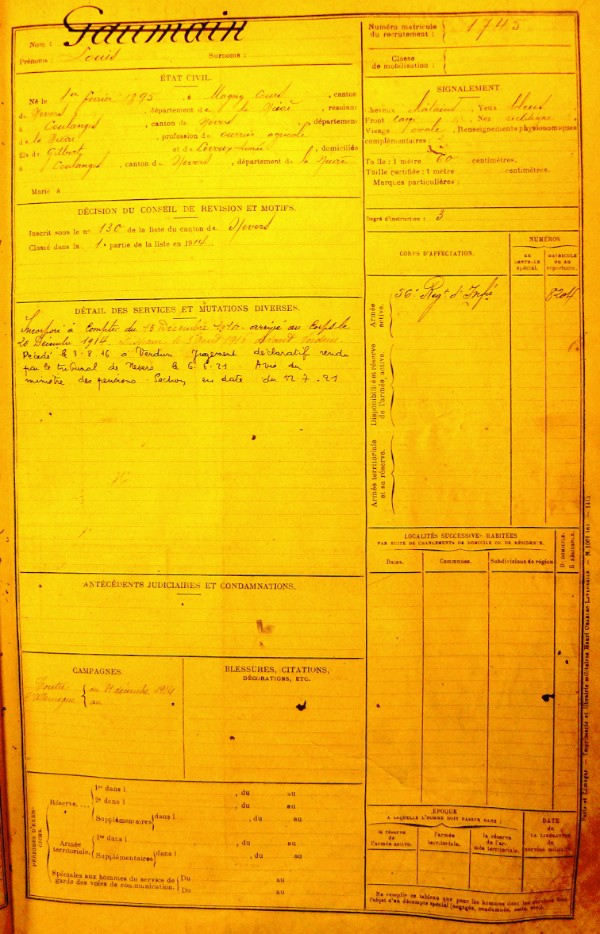 Nom : Gaumain
Prénoms : Louis Surnoms :
Numéro matricule du recrutement : 1745
Classe de mobilisation :
ÉTAT CIVIL.
Né le 1er février 1895, à Magny Cours, canton
de Nevers, département de la Nièvre, résidant
à Coulanges, canton de Nevers, département
de la Nièvre, profession de ouvrier agricole
fils de Gilbert et de , domiciliés
à Coulanges, canton de Nevers, département de la Nièvre
Marié à
SIGNALEMENT.
Cheveux châtains Yeux bleus
Front Nez rectiligne
Visage ovale, Renseignements physionomiques
complémentaires :
Taille : 1 mètre 60 centimètres.
Taille rectifiée : 1 mètre centimètres.
Marques particulières :
Degré d'instruction : 3
DÉCISION DU CONSEIL DE RÉVISION ET MOTIFS.
Inscrit sous le n° 130 de la liste du canton de Nevers
Classé dans la 1e partie de la liste en 1914.
CORPS D'AFFECTATION.
NUMÉROS
AU CONTRÔLE SPÉCIAL.
MATRICULE OU AU RÉPERTOIRE.
Armée active.
56e Regt d'Infie
8204
Disponibilité et réserve de l'armée active.
Armée territoriale et sa réserve.
DÉTAIL DES SERVICES ET MUTATIONS DIVERSES.
Incorporé à compter du 15 Décembre 1914 arrivé au corps le
20 Décembre 1914. Disparu le 3 août 1916 devant Verdun.
Décédé le 3-8-16 à Verdun Jugement déclaratif rendu
par le tribunal de Nevers le 6.5.21 Avis du
ministre des pensions en date du 12.7.21
LOCALITÉS SUCCESSIVES HABITÉES
PAR SUITE DE CHANGEMENTS DE DOMICILE OU DE RÉSIDENCE.
Dates. Communes. Subdivisions de région.
D. DOMICILE.
R. RÉSIDENCE.
ANTÉCÉDENTS JUDICIAIRES ET CONDAMNATIONS.
CAMPAGNES.
Contre l'Allemagne du décembre 1914
au
BLESSURES, CITATIONS,
DÉCORATIONS, ETC.
PÉRIODES D'EXERCICES.
Réserve.... 1re dans l , du au
2e dans l , du au
Supplémentaires dans l , du au
Armée territoriale. 1re dans l , du au
Supplémentaires dans l , du au
Spéciales aux hommes du service de
garde des voies de communication. Du au
Du au
ÉPOQUE
A LAQUELLE L'HOMME DOIT PASSER DANS :
la réserve de l'armée active.
l'armée territoriale.
la réserve de l'armée territoriale.
DATE DE LA LIBÉRATION DU SERVICE MILITAIRE.
Ne remplir ce tableau que pour les hommes dont les services font
l'objet d'un décompte spécial (engagés, condamnés, omis, etc.).
Paris et Limoges — Imprimerie et librairie militaires Henri Charles-Lavauzelle